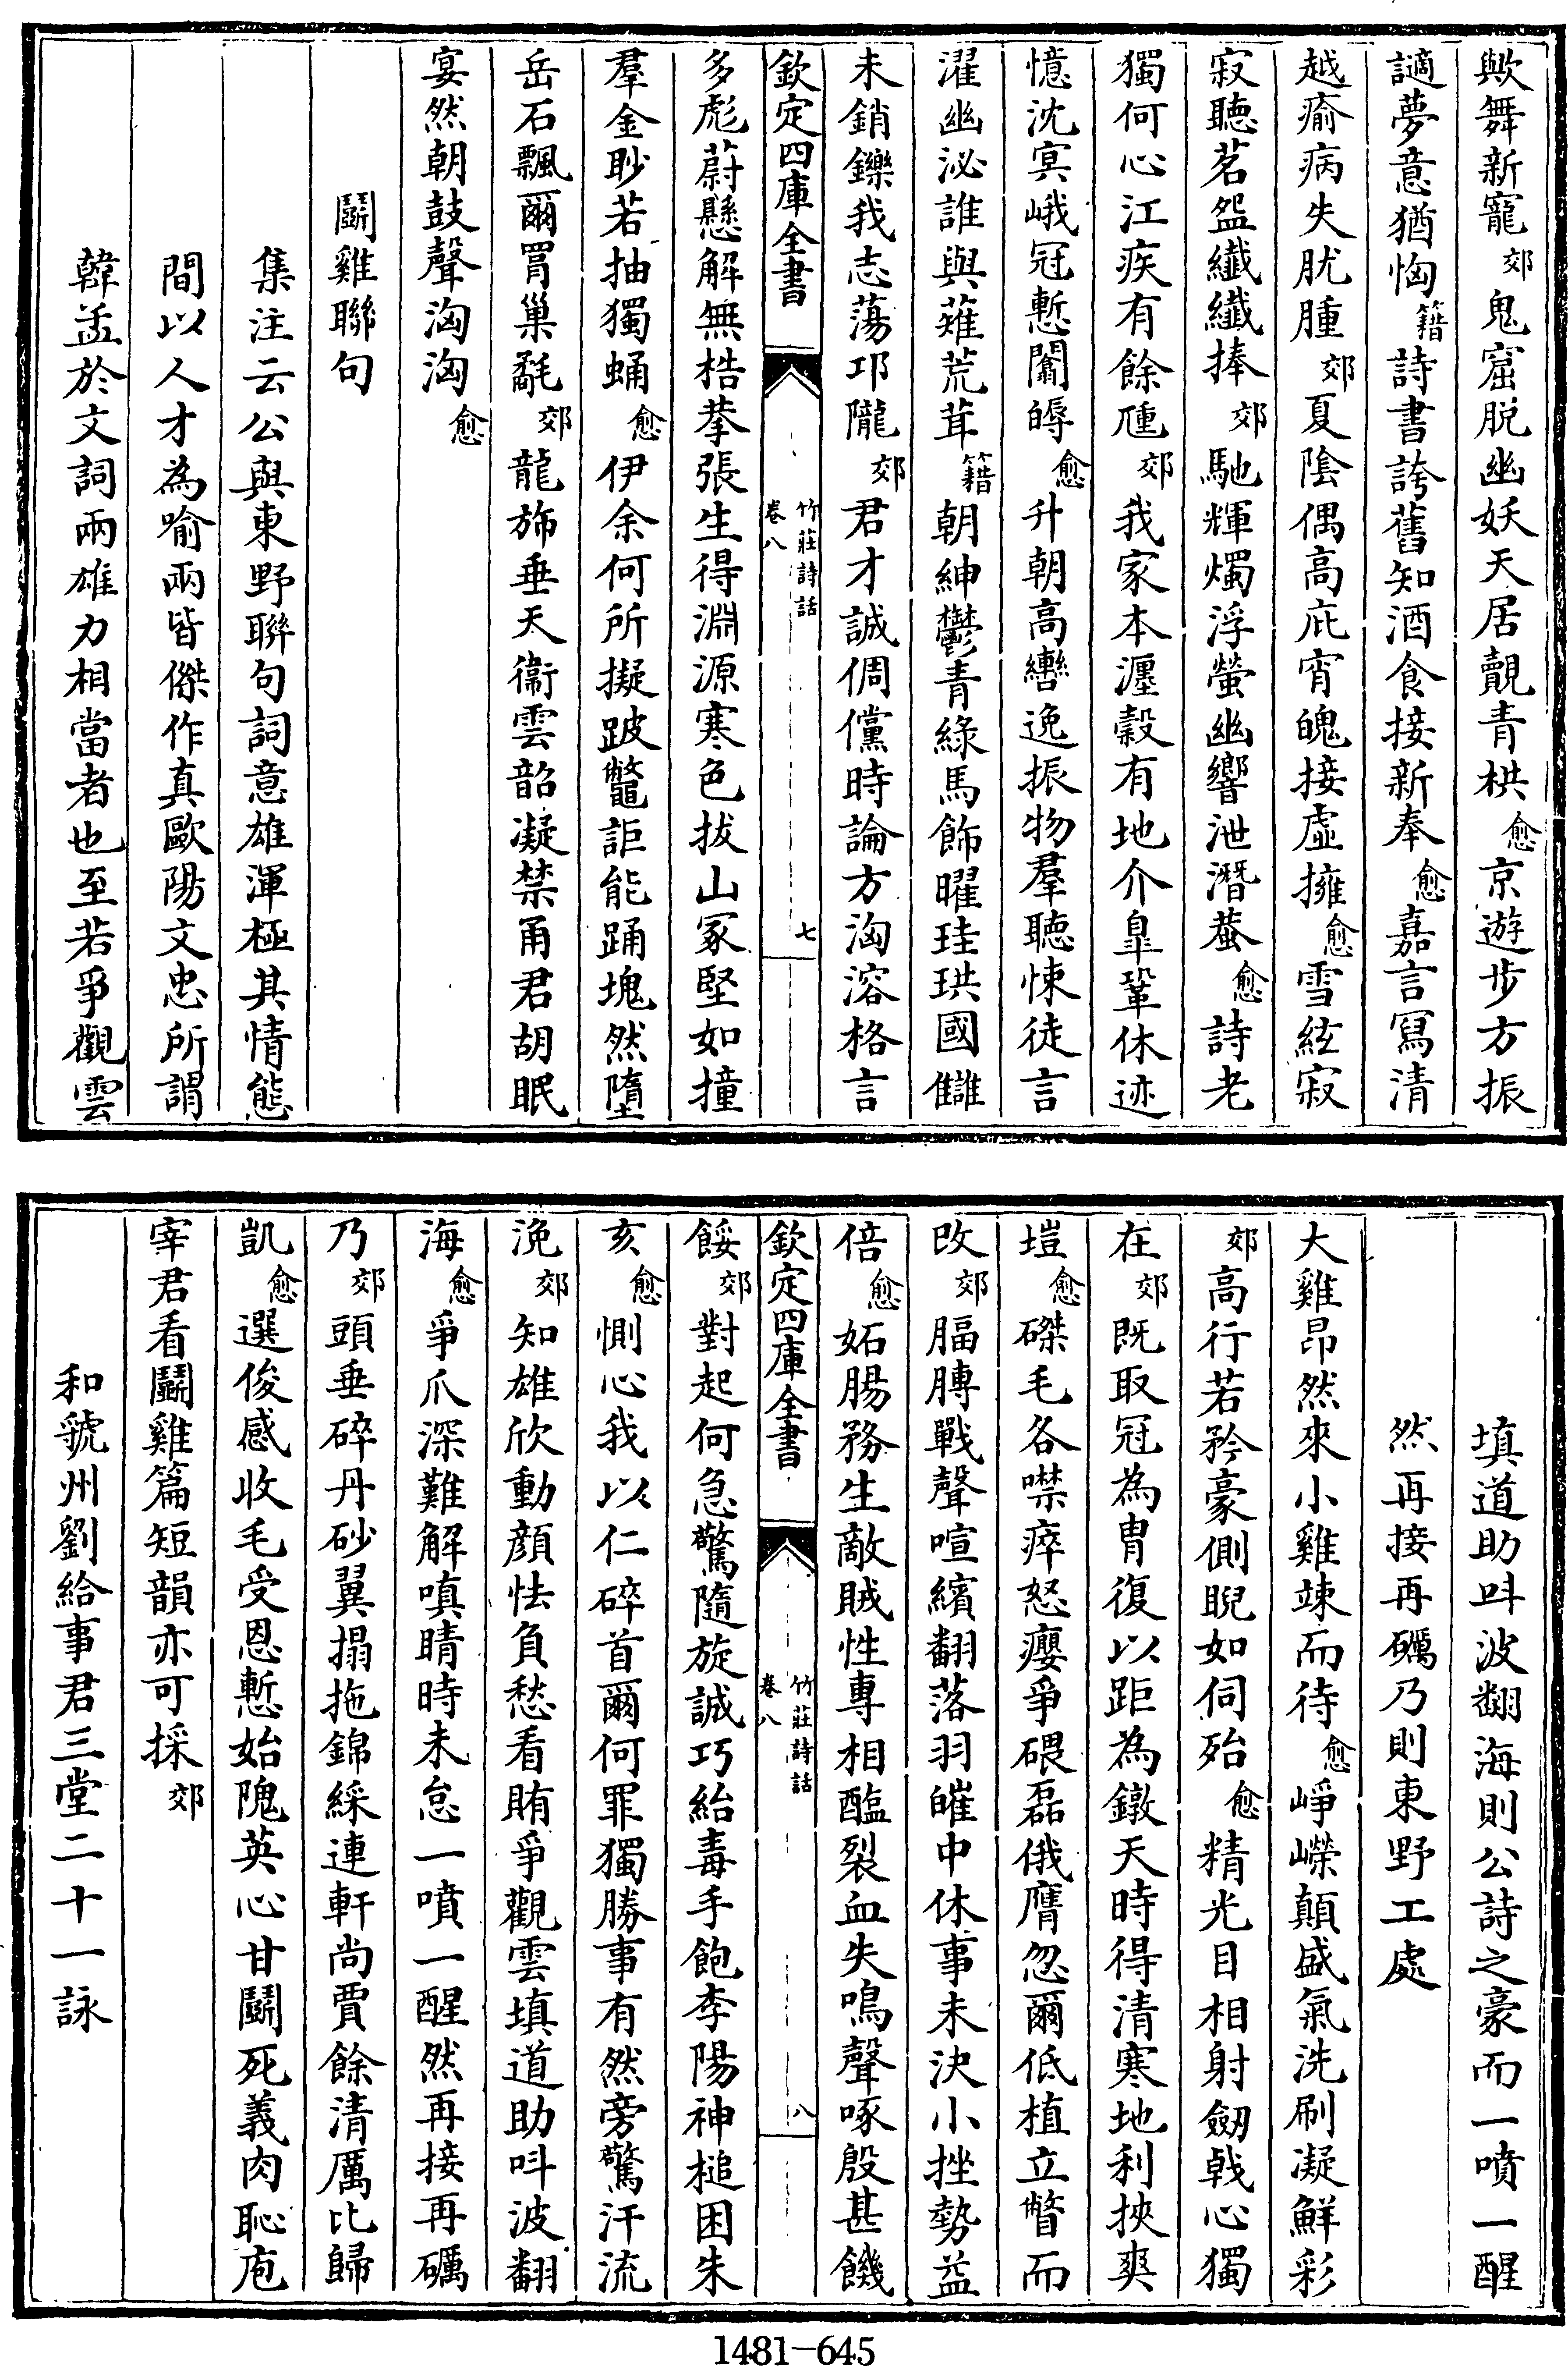 歟舞新寵郊鬼窟脫幽妖天居覿青栱愈京遊步方振
讁夢意猶恟籍詩書誇舊知酒食接新奉愈嘉言寫清
越瘉病失肬腫郊夏陰偶高庇宵魄接虛擁愈雪絃寂
寂聽茗盌纖纖捧郊馳輝燭浮螢幽響泄潛蛬愈詩老
獨何心江疾有餘尰郊我家本瀍穀有地介臯鞏休迹
憶沈冥峨冠慙闟㟅愈升朝高轡逸振物羣聽悚徒言
濯幽泌誰與薙荒茸籍朝紳鬱青綠馬飾曜珪珙國讎
未銷鑠我志蕩卭隴郊君才誠倜儻時論方洶溶格言
欽定四庫全書 竹莊詩話 卷八 七
多彪蔚懸解無梏拲張生得淵源寒色拔山冢堅如撞
羣金眇若抽獨蛹愈伊余何所擬跛鼈詎能踊塊然墮
岳石飄爾罥巢氄郊龍旆垂天衞雲韶凝禁甬君胡眠
宴然朝鼓聲洶洶愈
鬭雞聯句
集注云公與東野聯句詞意雄渾極其情態
間以人才為喻兩皆傑作真歐陽文忠所謂
韓孟於文詞兩雄力相當者也至若爭觀雲
填道助呌波翻海則公詩之豪而一噴一醒
然再接再礪乃則東野工處
大雞昂然來小雞竦而待愈崢嶸顛盛氣洗刷凝鮮彩
郊高行若矜豪側睨如伺殆愈精光目相射劒戟心獨
在郊既取冠為冑復以距為鐓天時得清寒地利挾爽
塏愈磔毛各噤瘁怒癭爭碨磊俄膺忽爾低植立瞥而
改郊腷膊戰聲喧繽翻落羽皠中休事未決小挫勢益
倍愈妬腸務生敵賊性專相醢裂血失鳴聲啄殷甚饑
欽定四庫全書 竹莊詩話 卷八 八
餒郊對起何急驚隨旋誠巧紿毒手飽李陽神槌困朱
亥愈惻心我以仁碎首爾何罪獨勝事有然旁驚汗流
浼郊知雄欣動顏怯負愁看賄爭觀雲填道助呌波翻
海愈爭爪深難解嗔睛時未怠一噴一醒然再接再礪
乃郊頭垂碎丹砂翼搨拖錦綵連軒尚賈餘清厲比歸
凱愈選俊感收毛受恩慙始隗英心甘鬭死義肉恥庖
宰君看鬭雞篇短韻亦可採郊
和虢州劉給事君三堂二十一詠
1481—645